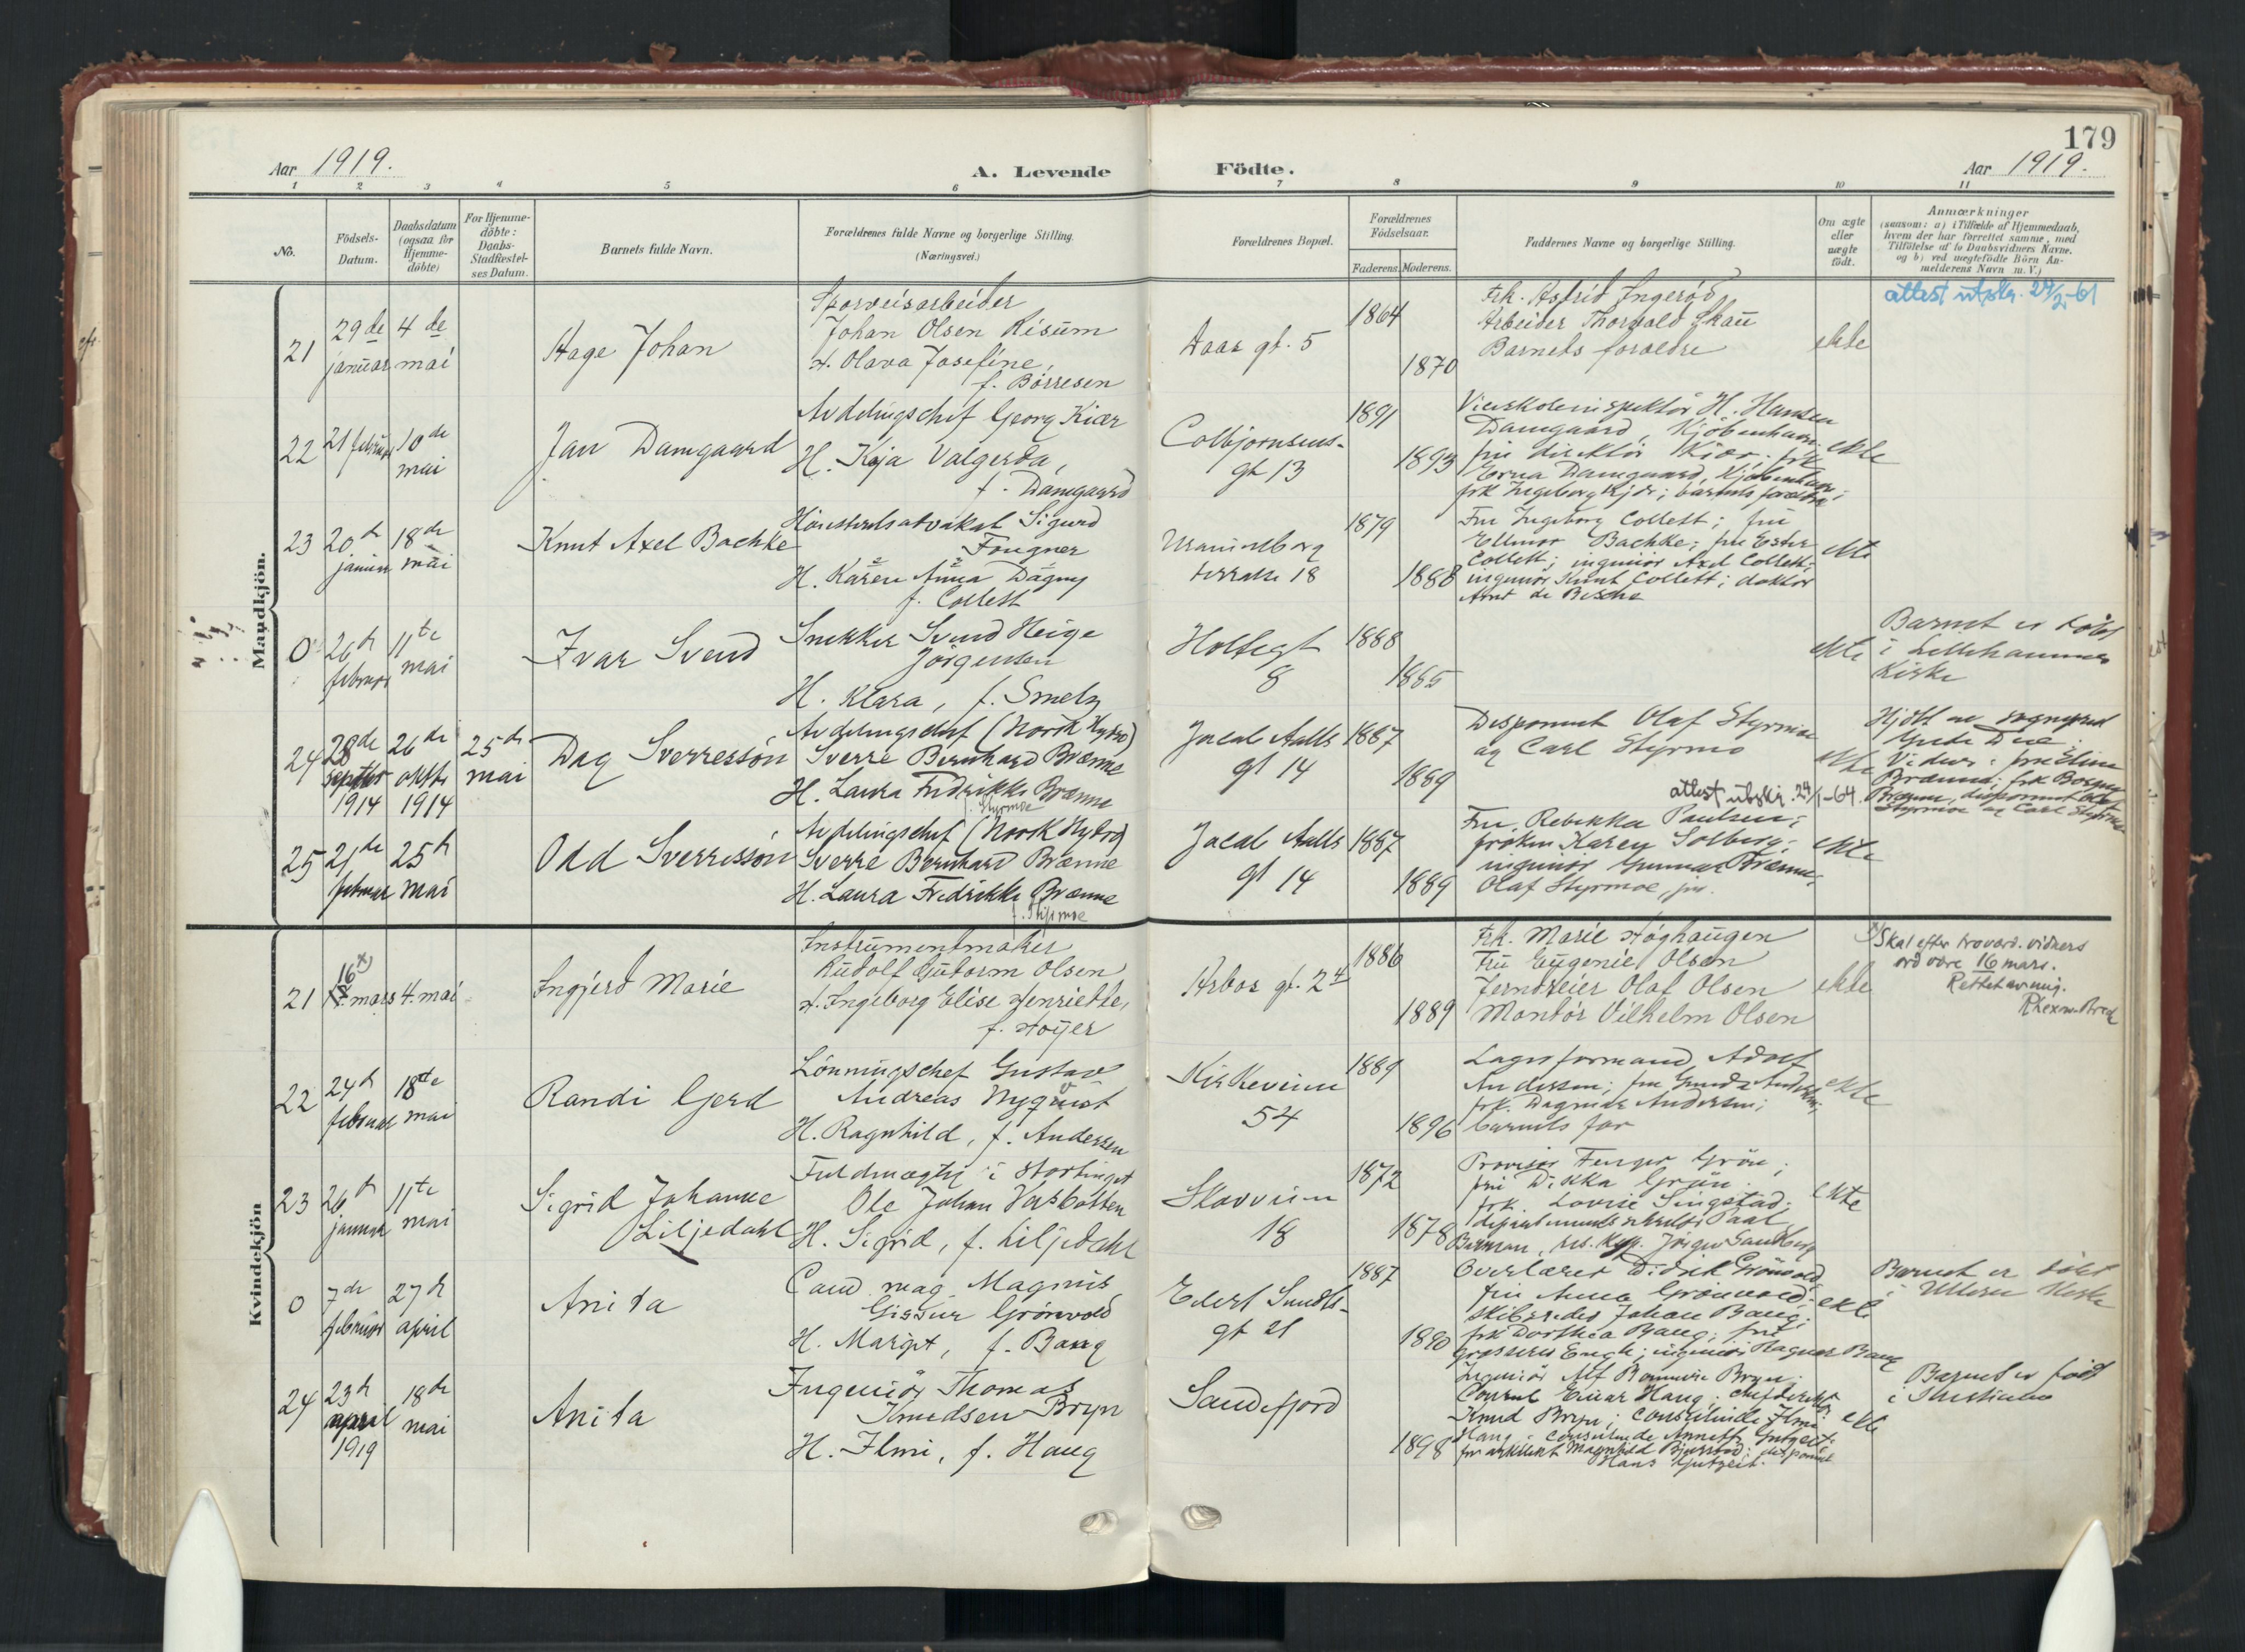 179
Aar 1919.
A. Levende Födte.
Aar 1919.
1 2 3 4 5 6 7 8 9 10 11
No.
Födsels-Datum.
Daabsdatum (ogsaa for Hjemme-döbte)
For Hjemme-döbte: Daabs-Stadfæstel-ses Datum.
Barnets fulde Navn.
Forældrenes fulde Navne og borgerlige Stilling.
(Næringsvei.)
Forældrenes Bopæl.
Forældrenes Födselsaar.
Faderens. Moderens.
Faddernes Navne og borgerlige Stilling.
Om ægte eller uægte födt.
Anmærkninger
(saasom: a) i Tilfælde af Hjemmedaab,
hvem der har forrettet samme, med
Tilföielse af to Daabsvidners Navne,
og b) ved uægtefödte Börn An-
melderens Navn m. V.)
Mandkjön.
21
29de januar
4de mai
Hage Johan
Sporveisarbeider
Johan Olsen Risum
H. Olava Josefine,
f. Børresen
Daas gt. 5
1864
1870
Frk. Astrid Ingerød
Arbeider Thorvald Skau
Barnets forældre
ekte
attest utskr. 24/2-61
22
21 februar
10de mai
Jan Damgaard
Avdelingschef Georg Kiær
H. Kaja Valgerda,
f. Damgaard
Colbjørnsens-
gt 13
1891
1893
Vinskoleinspektør H. Hansen
Damgaard, Kjøbenhavn
fru direktør Kiær; frk
Erna Damgaard, Kjøbenhavn;
frk Ingeborg Kjær; barnets forældre
ekte
23
20de januar
18de mai
Knut Axel Bachke
Høiesteretsadvokat Sigurd
Fougner
H. Karen Anna Dagny
f. Collett
Uranienborg
terrasse 18
1879
1888
Fru Ingeborg Collett; fru
Ellinor Bachke; fru Ester
Collett; ingeniør Axel Collett;
ingeniør Knut Collett; doktor
Arnt de Besche
ekte
0
26de februar
11te mai
Ivar Svend
Snekker Svend Heige
Jörgensen
H. Klara, f. Smely
Holtegt
8
1888
1885
ekte
Barnet er døbt
i Lillehammer
Kirke
24
28de septbr 1914
26de oktbr 1914
25de mai
Dag Sverressøn
Avdelingschef (Norsk Hydro)
Sverre Bernhard Brænne
H. Laura Fredrikke Brænne
Styrmoe
Jacob Aalls
gt 14
1887
1889
Disponent Olaf Styrmoe
og Carl Styrmo
ekte
Hjdbt av sogneprest
Due.
Vidner: fru Eline
Brænne; frk Borgny
Brænne, disponent Olaf
Styrmoe og Carl Styrmoe
attest utskr. 24/1-64.
25
21de februar
25de mai
Odd Sverressøn
Avdelingschef (Norsk Hydro)
Sverre Bernhard Brænne
H. Laura Fredrikke Brænne
f. Styrmoe
Jacob Aalls
gt 14
1887
1889
Fru Rebekka Paulsen;
frøken Karen Solberg;
ingeniør Gunnar Brænne;
Olaf Styrmoe, jnr.
ekte
Kvindekjön
21
16 x) mars
4. mai
Ingjerd Marie
Instrumentmaker
Rudolf Guttorm Olsen
H. Ingeborg Elise Henriette,
f. Høyer
Arbos gt. 2 4
1886
1889
Frk. Marie Høghaugen
Fru Eugenie Olsen
Jerndreier Olaf Olsen
Montør Vilhelm Olsen
ekte
x) Skal efter troværd. vidners
ord være 16 mars.
Rettet av mig.
22
24de februar
18de mai
Randi Gjerd
Lønningschef Gustav
Andreas Nyqvist
H. Ragnhild, f. Andersen
Kirkeveien
54
1889
1896
Lagerformand Adolf
Andersen; fru Gunda Andersen;
frk. Dagmar Andersen;
barnets far
ekte
23
26de januar
11te mai
Sigrid Johanne
Liljedahl
Fuldmægtig i Stortinget
Ole Johan Vasbotten
H. Sigrid, f. Liljedahl
Skovveien
18
1872
1878
Provisor Fenger Grøn;
fru Dikka Grøn;
frk. Lovise Singstad;
Paal
Berman, res. kap. Jørgen Sandberg
ekte
0
7de februar
27de april
Anita
Cand. mag. Magnus
Gissur Grönvold
H. Margit, f. Bang
Eilert Sundts-
gt 21
1887
1890
Overlærer Didrik Grønvold;
fru Anna Grønvold;
skibsreder Johan Bang;
frk Dorthea Bang; fru
grosserer Engh; ingeniør Ragnar Bang
ekte
Barnet er døbt
i Ullern Kirke
24
23de april 1919
18de mai
Anita
Ingeniør Thomas
Knudsen Bryn
H. Ilmi, f. Haug
Sandefjord
1898
Ingeniør Alf Bryn;
Consul Einar Haug; chefdirektør
Knud Bryn; consulinde Ilmi
Haug; consulinde Annette Gutzeit;
fru arkitekt Magnhild Bjerstad; disponent
Hans Gutzeit.
ekte
Barnet er født
i Kristiania